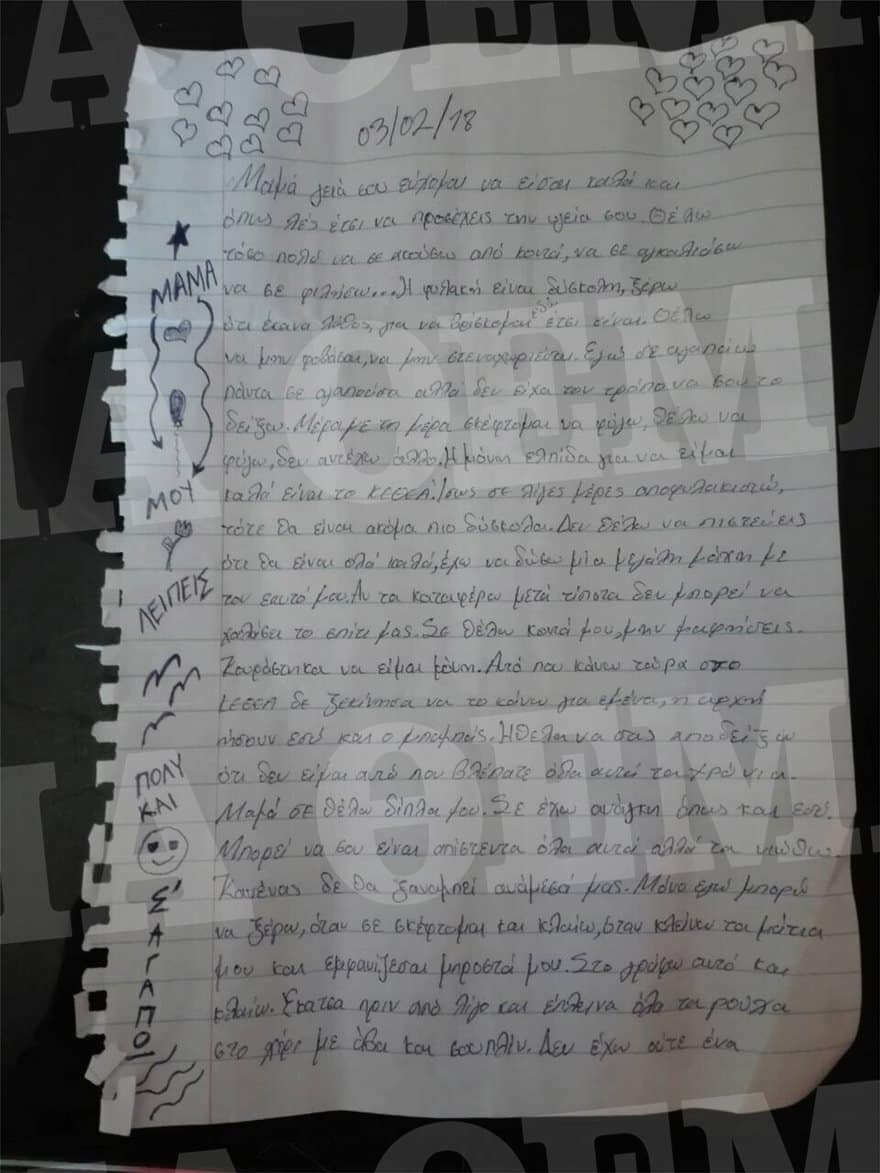 03/02/18
Μαμά γειά σου εύχομαι να είσαι καλά και
όπως λές έτσι να προσέχεις την υγεία σου. Θέλω
τόσο πολύ να σε ακούσω από κοντά, να σε αγκαλιάσω
να σε φιλήσω... Η φυλακή είναι δύσκολη, ξέρω
ότι έκανα λάθος, για να βρίσκομαι εδώ έτσι είναι. Θέλω
να μην φοβάσαι, να μην στεναχωριέσαι. Εγώ σε αγαπάω
πάντα σε αγαπούσα αλλά δεν είχα τον τρόπο να σου το
δείξω. Μέρα με τη μέρα σκέφτομαι να φύγω, θέλω να
φύγω, δεν αντέχω άλλο. Η μόνη ελπίδα για να είμαι
καλά είναι το ΚΕΘΕΑ. Ίσως σε λίγες μέρες αποφυλακιστώ,
τότε θα είναι ακόμα πιο δύσκολα. Δεν θέλω να πιστεύεις
ότι θα είναι ολά καλά, έχω να δώσω μία μεγάλη μάχη με
τον εαυτό μου. Αν τα καταφέρω μετά τίποτα δεν μπορεί να
χαλάσει το σπίτι μας. Σε θέλω κοντά μου, μην
Κουράστηκα να είμαι μόνη. Από που κάνω τώρα στο
ΚΕΘΕΑ δε ξεκίνησα να το κάνω για εμένα, η αρχή
ήσουν εσύ και ο μπαμπάς. Ήθελα να σας αποδείξω
ότι δεν είμαι από που βλέπατε όλα αυτά τα χρόνια.
Μαμά σε θέλω δίπλα μου. Σε έχω ανάγκη όπως και εσύ.
Μπορεί να σου είναι απίστευτα όλα αυτά αλλά τα νιώθω.
Κανένας δε θα ξαναμπεί ανάμεσά μας. Μόνο εγώ μπορώ
να ξέρω, όταν σε σκέφτομαι και κλαίω, όταν κλείνω τα μάτια
μου και εμφανίζεσαι μπροστά μου. Στο γράφω αυτό και
κλαίω. Έκατσα πριν από λίγο και έπλεινα όλα τα ρούχα
στο χέρι με άβα και σουπλίν. Δεν έχω ούτε ένα
ΜΑΜΑ
ΜΟΥ
ΛΕΙΠΕΙΣ
ΠΟΛΥ
ΚΑΙ
Σ'
Α
Γ
Α
Π
Ο
ΘΕΜΑ
ΘΕΜΑ
ΘΕΜΑ